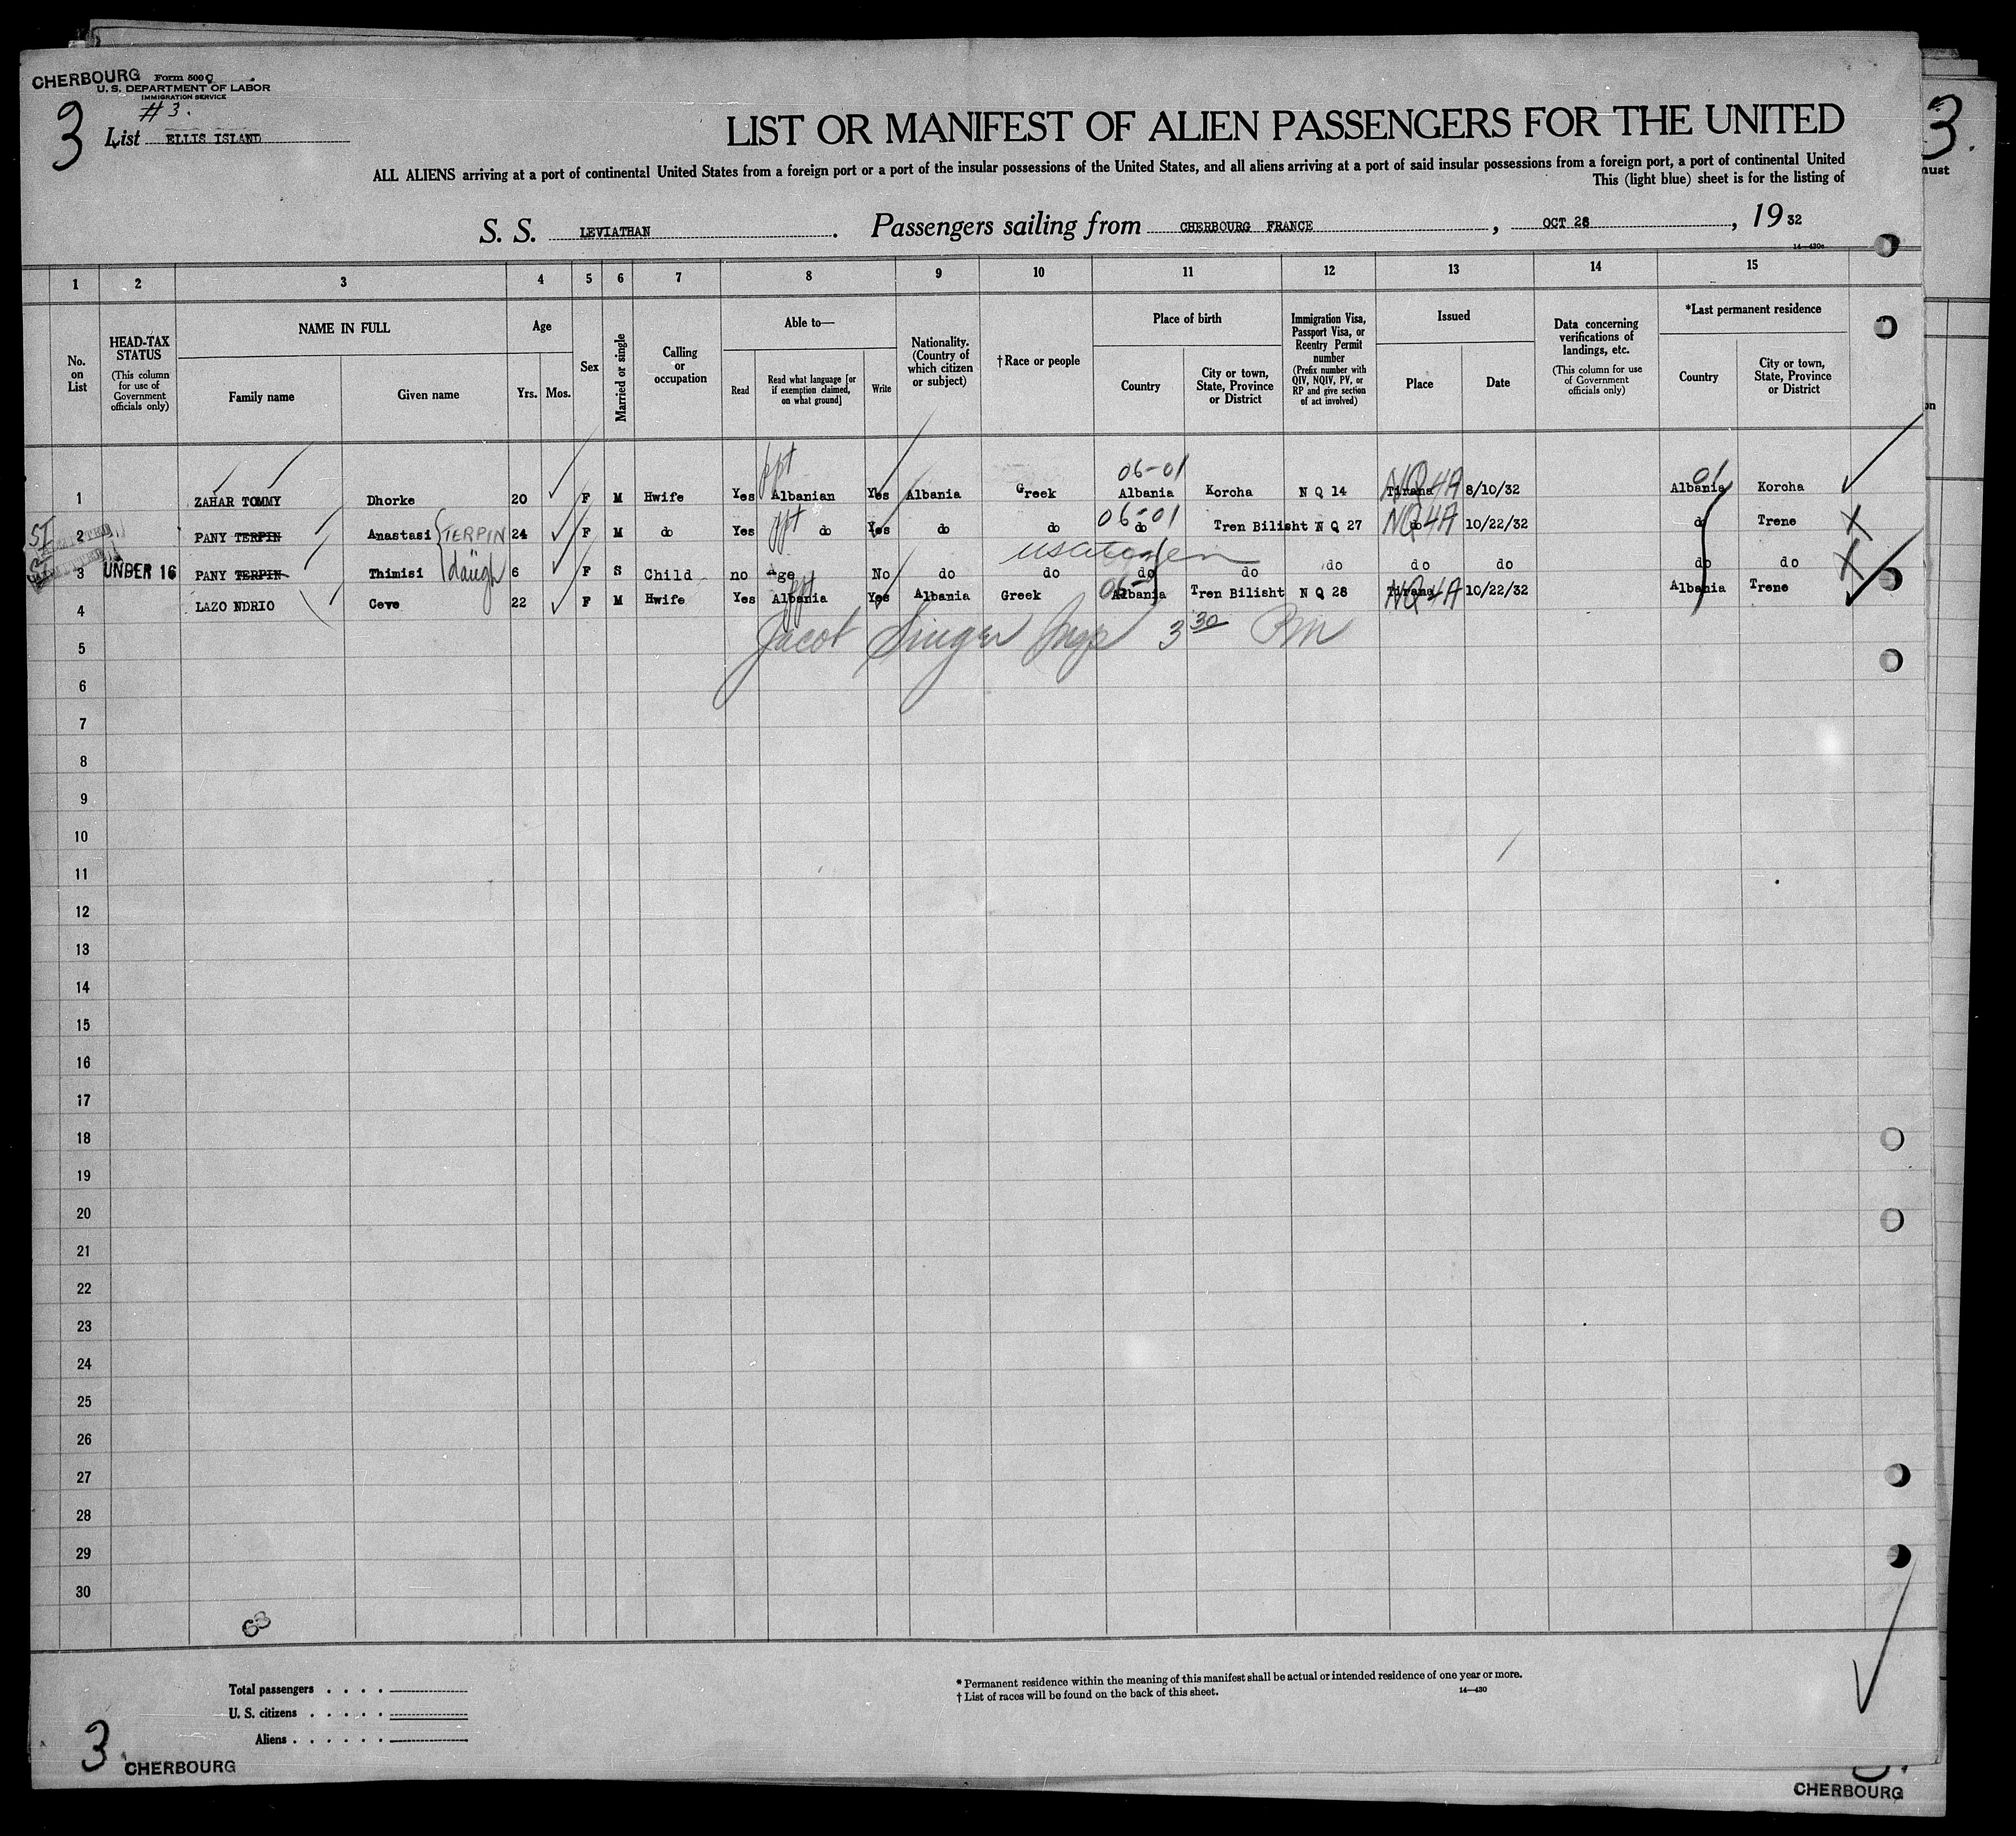 CHERBOURG Form 500 C
U. S. DEPARTMENT OF LABOR
IMMIGRATION SERVICE
# 3.
3 List ELLIS ISLAND
3.
must
LIST OR MANIFEST OF ALIEN PASSENGERS FOR THE UNITED
ALL ALIENS arriving at a port of continental United States from a foreign port or a port of the insular possessions of the United States, and all aliens arriving at a port of said insular possessions from a foreign port, a port of continental United
This (light blue) sheet is for the listing of
S. S. LEVIATHAN. Passengers sailing from CHERBOURG FRANCE, OCT 28, 19 32
1 2 3 4 5 6 7 8 9 10 11 12 13 14 15
No. on List
HEAD-TAX STATUS (This column for use of Government officials only)
NAME IN FULL
Family name Given name
Age
Yrs. Mos.
Sex
Married or single
Calling or occupation
Able to—
Read Read what language [or if exemption claimed, on what ground] Write
Nationality. (Country of which citizen or subject)
†Race or people
Place of birth
Country City or town, State, Province or District
Immigration Visa, Passport Visa, or Reentry Permit number (Prefix number with QIV, NQIV, PV, or RP and give section of act involved)
Issued
Place Date
Data concerning verifications of landings, etc. (This column for use of Government officials only)
*Last permanent residence
Country City or town, State, Province or District
ppt 06-01 01
1 ZAHAR TOMMY Dhorke 20 F M Hwife Yes Albanian Yes Albania Greek Albania Koroha N Q 14 Tirana NQ 4A 8/10/32 Albania Koroha
ppt 06-01
SI 2 PANY TERPIN Anastasi TERPIN 24 F M do Yes do Yes do do do Tren Bilisht N Q 27 do NQ 4A 10/22/32 do Trene X
us citizen
SI 3 UNDER 16 PANY TERPIN Thimisi daugh 6 F S Child no Age No do do do do do do do do do X
ppt
4 LAZO NDRIO Ceve 22 F M Hwife Yes Albania Yes Albania Greek Albania Tren Bilisht N Q 28 Tirana NQ 4A 10/22/32 Albania Trene
Jacob Singer Insp 3 30 PM
5
6
7
8
9
10
11
12
13
14
15
16
17
18
19
20
21
22
23
24
25
26
27
28
29
30
63
Total passengers
U. S. citizens
Aliens
* Permanent residence within the meaning of this manifest shall be actual or intended residence of one year or more.
† List of races will be found on the back of this sheet. 14—430
3. CHERBOURG
CHERBOURG